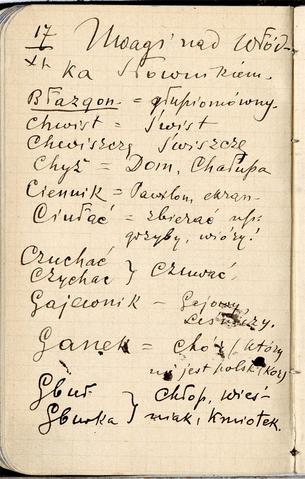 17
XI. Uwagi nad Włód-
ka Słownikiem.
Błazgon = głupiomówny.
Chwist = świst
Chwiszczę świszczę
Chyż = Dom, Chałupa
Ciennik = Pawilon, ekran.
Ciułać = zbierać np.
grzyby, wióry!
Czuchać
Czychać } Czuwać.
Gajewnik – Gajowy,
Leśniczy.
Ganek = (który
nie jest polski
Gbur
Gburka } Chłop, wieś-
niak, Kmiotek.